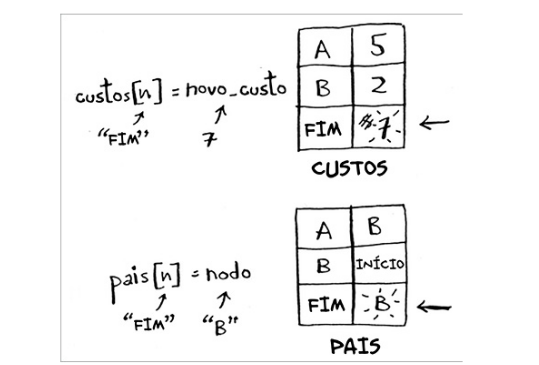 custos[n] = novo_custo
"FIM" 7
A 5
B 2
FIM 7
CUSTOS
pais[n] = nodo
"FIM" "B"
A B
B INÍCIO
FIM B
PAIS